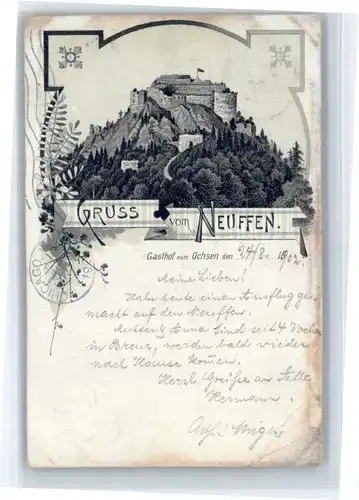 GRUSS vom NEUFFEN.
Gasthof zum Ochsen den 24/8. 1902.
Meine Lieben!
Habe heute einen Ausflug ge-
macht auf den Neuffen.
Mutter & Anna sind seit 4
in Brenz, werden bald wieder
nach Hause komen.
Herzl Grüße an Alle
Hermann.
CHICAGO